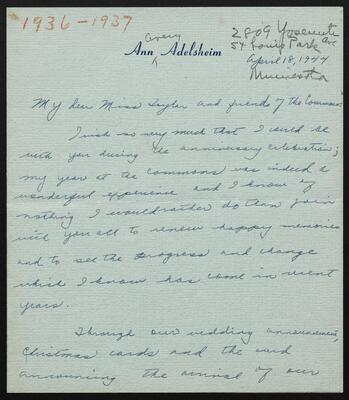 1936-1937
Avery
Ann Adelsheim
2809 Yosemite Ave
St Louis Park
April 18, 1944
Minnesota
My dear Miss and friends of the Commons:
I wish so very much that I could be
with you during the anniversary celebration;
my year at the commons was indeed a
wonderful experience and I know of
nothing I would rather do than join
with you all to renew happy memories
and to see the progress and change
which I know has come in recent
years.
Through our wedding announcement,
Christmas cards and the card
announcing the arrival of our